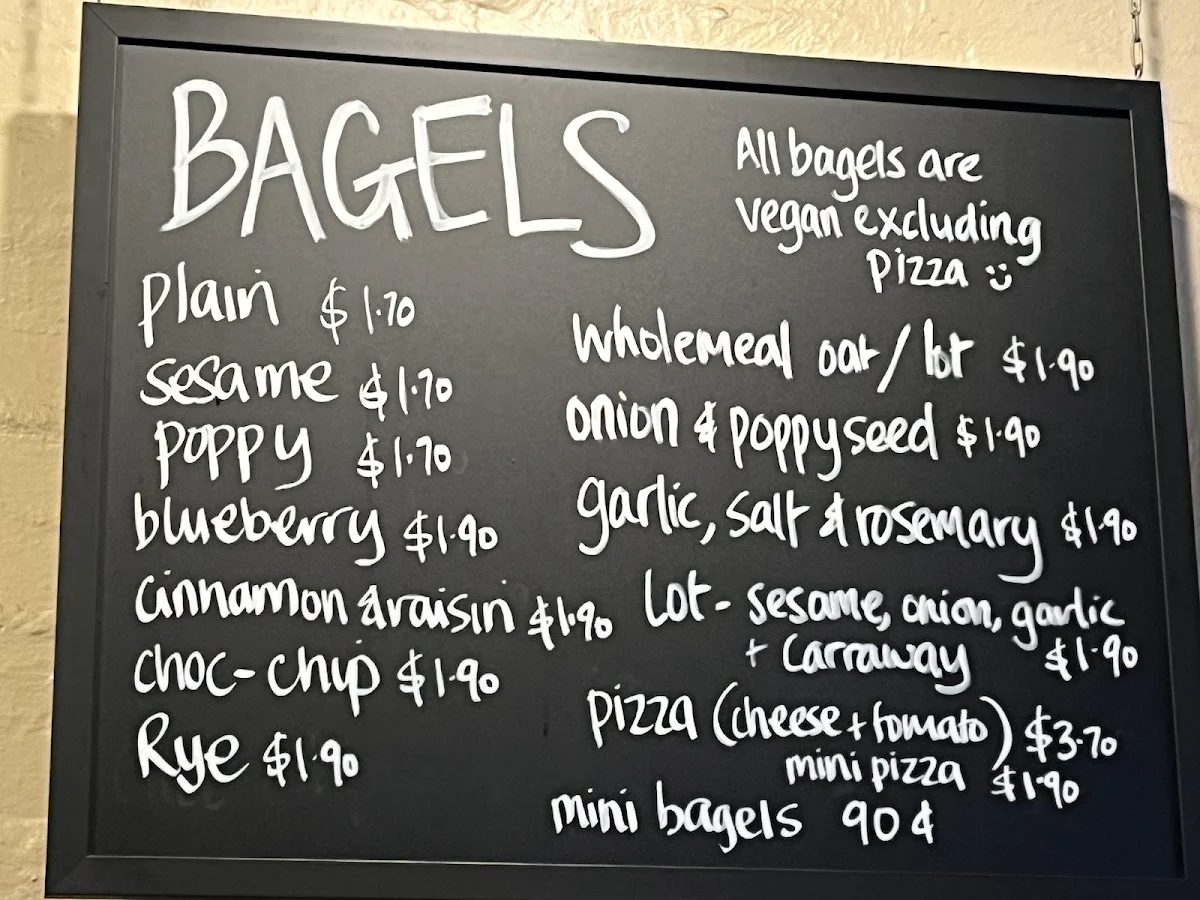 BAGELS
All bagels are
vegan excluding
pizza
plain $1.70
sesame $1.70
poppy $1.70
blueberry $1.90
cinnamon & raisin $1.90
choc-chip $1.90
Rye $1.90
wholemeal oat/lot $1.90
onion & poppyseed $1.90
garlic, salt & rosemary $1.90
Lot - sesame, onion, garlic
+ Carraway $1.90
pizza (cheese + tomato) $3.70
mini pizza $1.90
mini bagels 90¢